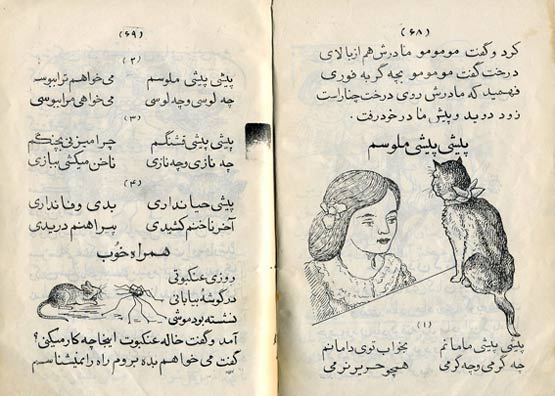 (۶۸)
کرد و گفت مومومو مادرش هم از بالای
درخت گفت مومومو بچه گربه فوری
فهمید که مادرش روی درخت چنار است
زود دوید و پیش مادر خود رفت.
پیشی پیشی ملوسم
(۱)
پیشی پیشی مامانم بخواب توی دامانم
چه گرمی و چه گرمی همچو حریر نرمی
(۶۹)
(۲)
پیشی پیشی ملوسم می خواهم ترا ببوسم
چه لوسی و چه لوسی می خواهی مرا ببوسی
(۳)
پیشی پیشی قشنگم چرا میزنی بچنگم
چه نازی و چه نازی ناخن میکشی ببازی
(۴)
پیشی حیا نداری بدی وفا نداری
آخر ناخنم کشیدی پیراهنم دریدی
همراه خوب
روزی عنکبوتی
در گوشهٔ بیابانی
نشسته بود موشی
آمد و گفت خاله عنکبوت اینجا چه کار میکنی؟
گفت می خواهم بده بروم راه را نمیشناسم